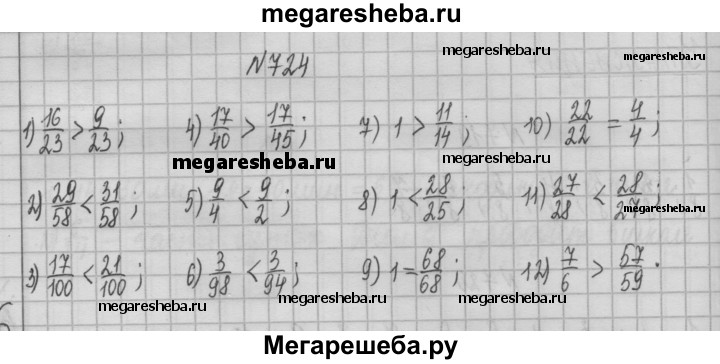 megaresheba.ru
N724
megaresheba.ru megaresheba.ru
1) 16/23 > 9/23; 4) 17/40 > 17/45; 7) 1 > 11/14; 10) 22/22 = 4/4;
megaresheba.ru megaresheba.ru
2) 29/58 < 31/58; 5) 9/4 < 9/2; 8) 1 < 28/25; 11) 27/28 < 28/27
megaresheba.ru
3) 17/100 < 21/100; 6) 3/98 < 3/94; 9) 1 = 68/68; 12) 7/6 > 57/59.
megaresheba.ru megaresheba.ru
Мегарешеба.ру